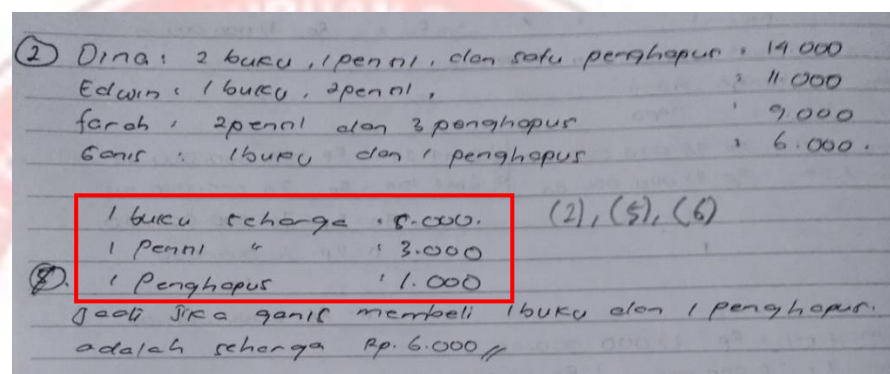 ② Dina : 2 buku, 1 pennl, dan satu penghapus : 14.000
Edwin : 1 buku, 2pennl, : 11.000
farah : 2pennl dan 3 penghapus : 9.000
Ganis : 1buku dan 1 penghapus : 6.000.
1 buku seharga : 5.000. (2), (5), (6)
1 Pennl " : 3.000
⑧. 1 Penghapus : 1.000
Jadi Jika ganis membeli 1buku dan 1 penghapus.
adalah seharga Rp. 6.000 //